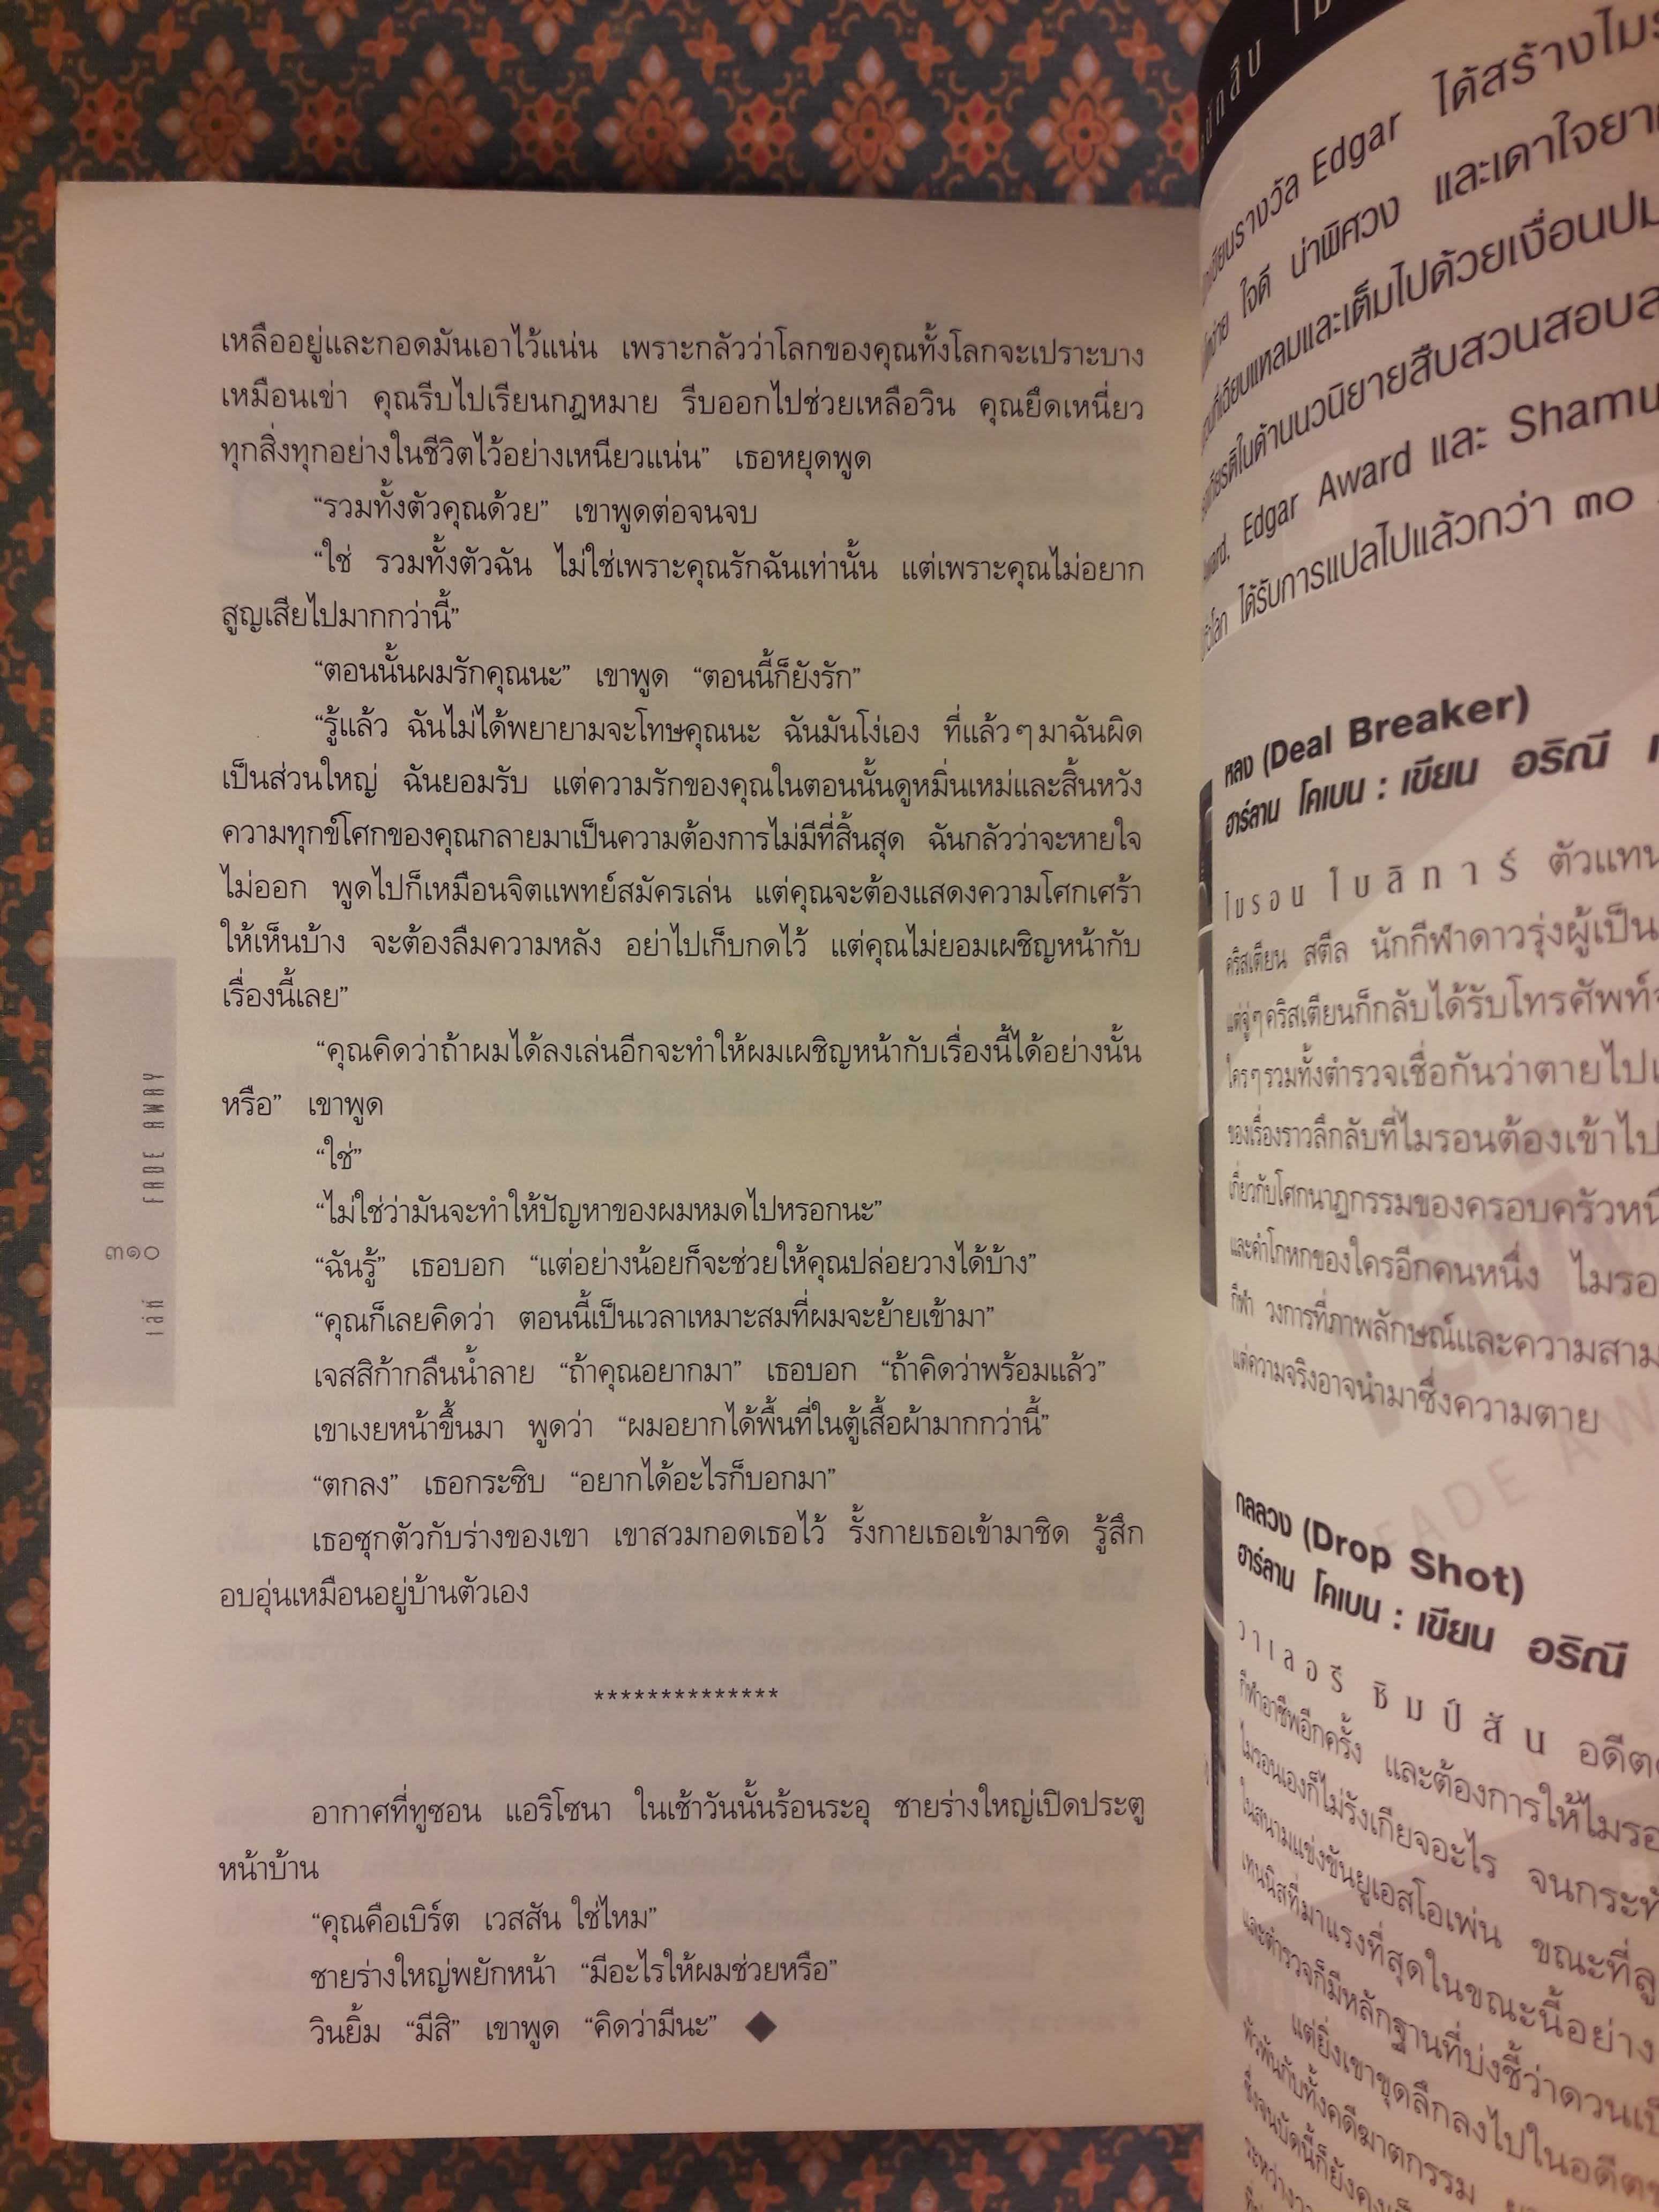 เหลืออยู่และกอดมันเอาไว้แน่น เพราะกลัวว่าโลกของคุณทั้งโลกจะเปราะบาง
เหมือนเข่า คุณรีบไปเรียนกฎหมาย รีบออกไปช่วยเหลือวิน คุณยึดเหนี่ยว
ทุกสิ่งทุกอย่างในชีวิตไว้อย่างเหนียวแน่น” เธอหยุดพูด
“รวมทั้งตัวคุณด้วย” เขาพูดต่อจนจบ
“ใช่ รวมทั้งตัวฉัน ไม่ใช่เพราะคุณรักฉันเท่านั้น แต่เพราะคุณไม่อยาก
สูญเสียไปมากกว่านี้”
“ตอนนั้นผมรักคุณนะ” เขาพูด “ตอนนี้ก็ยังรัก”
“รู้แล้ว ฉันไม่ได้พยายามจะโทษคุณนะ ฉันมันโง่เอง ที่แล้วๆมาฉันผิด
เป็นส่วนใหญ่ ฉันยอมรับ แต่ความรักของคุณในตอนนั้นดูหมิ่นเหม่และสิ้นหวัง
ความทุกข์โศกของคุณกลายมาเป็นความต้องการไม่มีที่สิ้นสุด ฉันกลัวว่าจะหายใจ
ไม่ออก พูดไปก็เหมือนจิตแพทย์สมัครเล่น แต่คุณจะต้องแสดงความโศกเศร้า
ให้เห็นบ้าง จะต้องลืมความหลัง อย่าไปเก็บกดไว้ แต่คุณไม่ยอมเผชิญหน้ากับ
เรื่องนี้เลย”
“คุณคิดว่าถ้าผมได้ลงเล่นอีกจะทำให้ผมเผชิญหน้ากับเรื่องนี้ได้อย่างนั้น
หรือ” เขาพูด
“ใช่”
“ไม่ใช่ว่ามันจะทำให้ปัญหาของผมหมดไปหรอกนะ”
“ฉันรู้” เธอบอก “แต่อย่างน้อยก็จะช่วยให้คุณปล่อยวางได้บ้าง”
“คุณก็เลยคิดว่า ตอนนี้เป็นเวลาเหมาะสมที่ผมจะย้ายเข้ามา”
เจสสิก้ากลืนน้ำลาย “ถ้าคุณอยากมา” เธอบอก “ถ้าคิดว่าพร้อมแล้ว”
เขาเงยหน้าขึ้นมา พูดว่า “ผมอยากได้พื้นที่ในตู้เสื้อผ้ามากกว่านี้”
“ตกลง” เธอกระซิบ “อยากได้อะไรก็บอกมา”
เธอซุกตัวกับร่างของเขา เขาสวมกอดเธอไว้ รั้งกายเธอเข้ามาชิด รู้สึก
อบอุ่นเหมือนอยู่บ้านตัวเอง
**************
อากาศที่ทูซอน แอริโซนา ในเช้าวันนั้นร้อนระอุ ชายร่างใหญ่เปิดประตู
หน้าบ้าน
“คุณคือเบิร์ต เวสสัน ใช่ไหม”
ชายร่างใหญ่พยักหน้า “มีอะไรให้ผมช่วยหรือ”
วินยิ้ม “มีสิ” เขาพูด “คิดว่ามีนะ” ◆
FADE AWAY
๓๑๐
เล่ห์
รางวัล Edgar ได้สร้าง
ใจดี น่าพิศวง และเดาใจ
และเต็มไปด้วยเงื่อน
ในด้านนวนิยายสืบสวนสอบ
Edgar Award และ
ได้รับการแปลไปแล้วกว่า ๓๐
หลง (Deal Breaker)
ฮาร์ลาน โคเบน : เขียน อริณี
ไมรอน โบลิทาร์ ตัวแทน
คริสเตียน สตีล นักกีฬาดาวรุ่งผู้เป็น
แต่จู่ๆคริสเตียนก็กลับได้รับโทรศัพท์
ใครๆรวมทั้งตำรวจเชื่อกันว่าตายไป
ของเรื่องราวลึกลับที่ไมรอนต้องเข้าไป
เกี่ยวกับโศกนาฏกรรมของครอบครัว
และคำโกหกของใครอีกคนหนึ่ง
กีฬา วงการที่ภาพลักษณ์และความ
แต่ความจริงอาจนำมาซึ่งความตาย
กลลวง (Drop Shot)
ฮาร์ลาน โคเบน : เขียน อริณี
วาเลอรี ซิมป์สัน
กีฬาอาชีพอีกครั้ง และต้องการให้
ไมรอนเองก็ไม่รังเกียจอะไร
ในสนามแข่งขันยูเอสโอเพ่น ขณะที่
เทนนิสที่มาแรงที่สุดในขณะนี้อย่าง
และตำรวจก็มีหลักฐานที่บ่งชี้ว่า
แต่ยิ่งเขาขุดลึกลงไปในอดีต
พัวพันกับทั้งคดีฆาตกรรม
ซึ่งจนบัดนี้ก็ยังคง